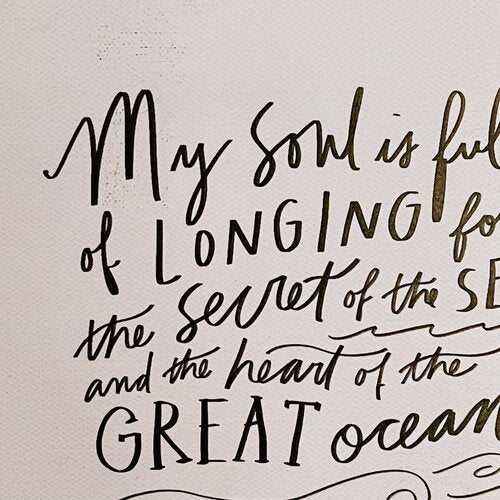 My soul is ful
of LONGING fo
the secret of the SE
and the heart of the
GREAT ocean